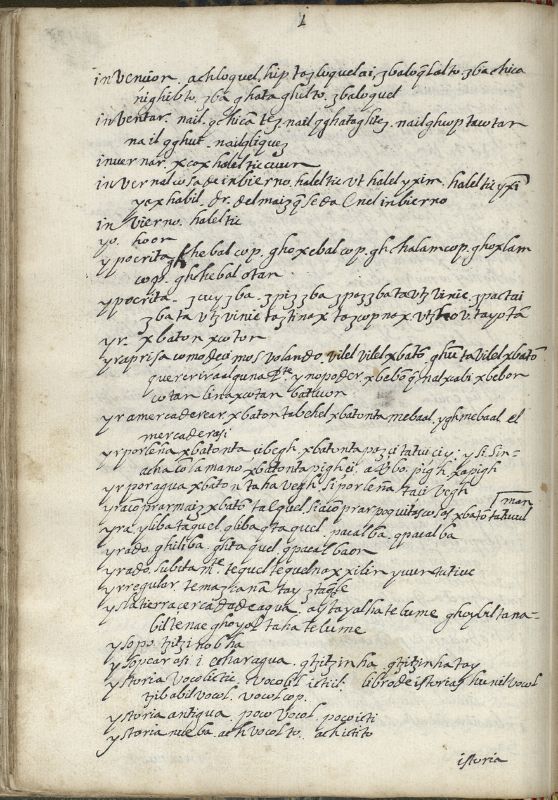 I
invencion. achloquel, hip ta zloquelai, zbaloq lalto, zbachica
nighibto, zba ghata ghulto, zbaloquel
inventar. nail. qchica tez. nail qghataghtez. nailghcop tacotan
nail qghut. nailqliquez
invernar. xcox haleltic cuun
invernal cosa de inbierno. haleltic vt halel yxim. haleltic yxi
yaxhabil. dr. del maiz q se da enel inbierno
invierno. haleltic
yo. hoon
ypocrita ghehebal cop. ghoxebal cop. gh. chalamcop. ghoxlam
cop. ghehebal otan.
ypocrita. zcuy zba. zpiz zba zpaz zbata vtz vinic. zpactai
zbata vtz vinic taztinax tazcopnax. vtz v. tayotan
yr. xbaton xcoton
yr aprisa como decimos volando. vilel vilel xbato ghun ta vilel xbato
querer ir a alguna pte. y no poder. xbebo q nal xabi xbebon
cotan bina xcotan batucon
yr a mercadear. xbaton tabehel xbatonta mebaal. yghmebaal el
mercader asi
yr por leña xbatonta sibegh. xbatonta pazci tatuciy. y si sin
acha co la mano xbatonta pighci. a Vbo. pigh xapigh
yr por agua xbaton taha vegh. si por leña taci vegh
yr a coprar maiz xbato talquel si a coprar poquitas cosas xbato tatucul man
yr a yliba taquel olibagta quel. pacalba. qpacalba
yrado. ghiliba. ghta quel. qpacalbaon
yrado. subitamte. tequel tequelnax xilin yuun tative
yrregular. temazcana tay zhaghe
ysla tierra cercada de agua. astayalhatelume ghoybiltana-
bil tenae ghoyol taha telume
ysopo. tzitzinobha
ysopear asi i echar agua. ghtzitzinha. ghtzitzinhatay
ystoria vocolistic. vocobil istic. libro de istorias hunilvocol
tzibabilvocol. vocolcop.
ystoria antigua. poco vocol. poco isti
ystoria nueba. achvocolto. achistito
istoria